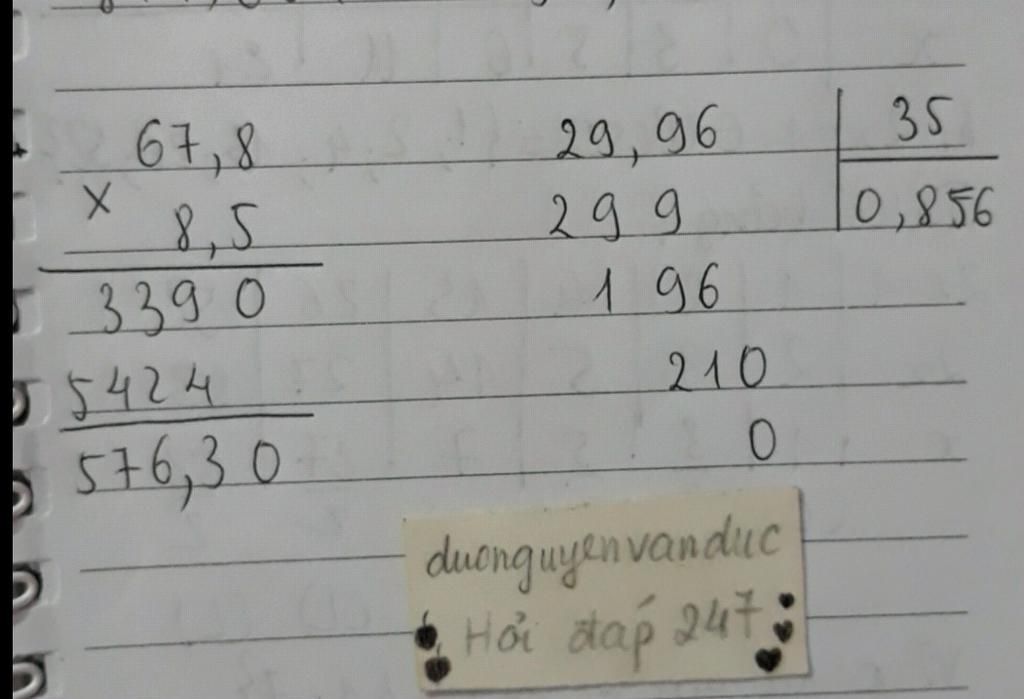 67,8
×
8,5
3390
5424
576,30
29,96 35
299 0,856
196
210
0
duonguyenvanduc
Hỏi đáp 247